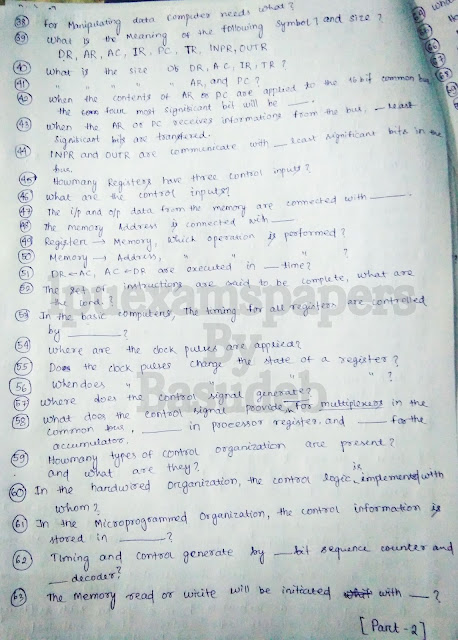 38 For Manipulating data computer needs what?
39 What is the meaning of the following symbol? and size?
DR, AR, AC, IR, PC, TR, INPR, OUTR
40 What is the size of DR, AC, IR, TR?
41 " " " " AR, and PC?
42 When the contents of AR or PC are applied to the 16 bit common bus
the four most significant bit will be ___.
43 When the AR or PC receives informations from the bus, _ least
significant bits are transfered.
44 INPR and OUTR are communicate with _ least significant bits in the
bus.
45 Howmany Registers have three control inputs?
46 What are the control inputs?
47 The i/p and o/p data from the memory are connected with ____.
48 The memory Address is connected with ___
49 Register → Memory, Which operation is performed?
50 Memory → Address, " " " ?
51 DR ← AC, AC ← DR are executed in __ time?
52 The set of instructions are said to be compute, what are
the cond.?
53 In the basic computers, The timing for all registers are controlled
by ______?
54 Where are the clock pulses are applied?
55 Does the clock pulses change the state of a register?
56 When does " " " " " ?
57 Where does the control signal generate?
58 What does the control signal provide, for multiplexers in the
common bus, _____ in processor register. and ____ for the
accumulator.
59 Howmany types of control organization are present?
and what are they?
60 In the hardwired organization, the control logic is implemented with
whom?
61 In the Microprogrammed Organization, the control information is
stored in _____?
62 Timing and control generate by __ bit sequence counter and
__ decoder?
63 The memory read or write will be initiated with __?
[Part - 2]
puexamspapers
By
Basudeb